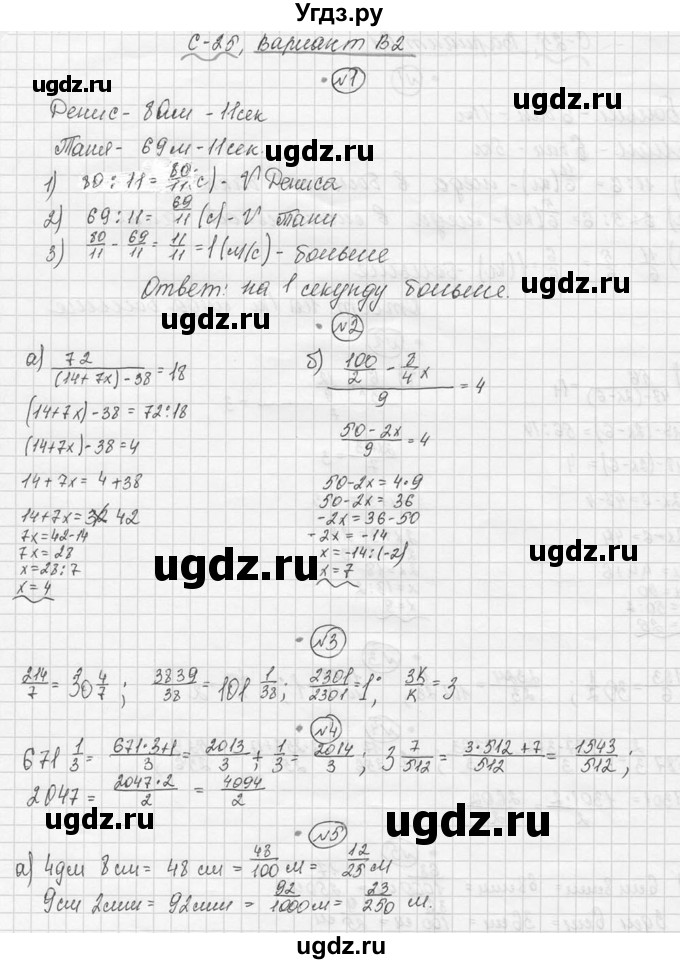 Угдз.ру
С-25, Вариант В2
№1
Денис - 80м - 11сек
Таня - 69м - 11сек.
1) 80 : 11 = 80/11 с) - V Дениса
2) 69 : 11 = 69/11 (с) - V Тани
3) 80/11 - 69/11 = 11/11 = 1 (м/с) - больше
Ответ: на 1 секунду больше.
№2
а) 72/((14+7x)-38) = 18
(14+7x)-38 = 72:18
(14+7x)-38 = 4
14+7x = 4+38
14+7x = 42
7x = 42-14
7x = 28
x = 28:7
x = 4
б) (100/2 - 8/4 x)/9 = 4
(50-2x)/9 = 4
50-2x = 4·9
50-2x = 36
-2x = 36-50
-2x = -14
x = -14:(-2)
x = 7
№3
214/7 = 30 4/7; 3839/38 = 101 1/38; 2301/2301 = 1; 3K/K = 3
№4
671 1/3 = (671·3+1)/3 = 2013/3 + 1/3 = 2014/3; 3 7/512 = (3·512+7)/512 = 1543/512;
2047 = (2047·2)/2 = 4094/2
№5
а) 4дм 8см = 48см = 48/100 м = 12/25 м
9см 2мм = 92мм = 92/1000 м = 23/250 м.
ugdz.ru
ugdz.ru
ugdz.ru
ugdz.ru
ugdz.ru
ugdz.ru
ugdz.ru
ugdz.ru
ugdz.ru
ugdz.ru
ugdz.ru
ugdz.ru
ugdz.ru